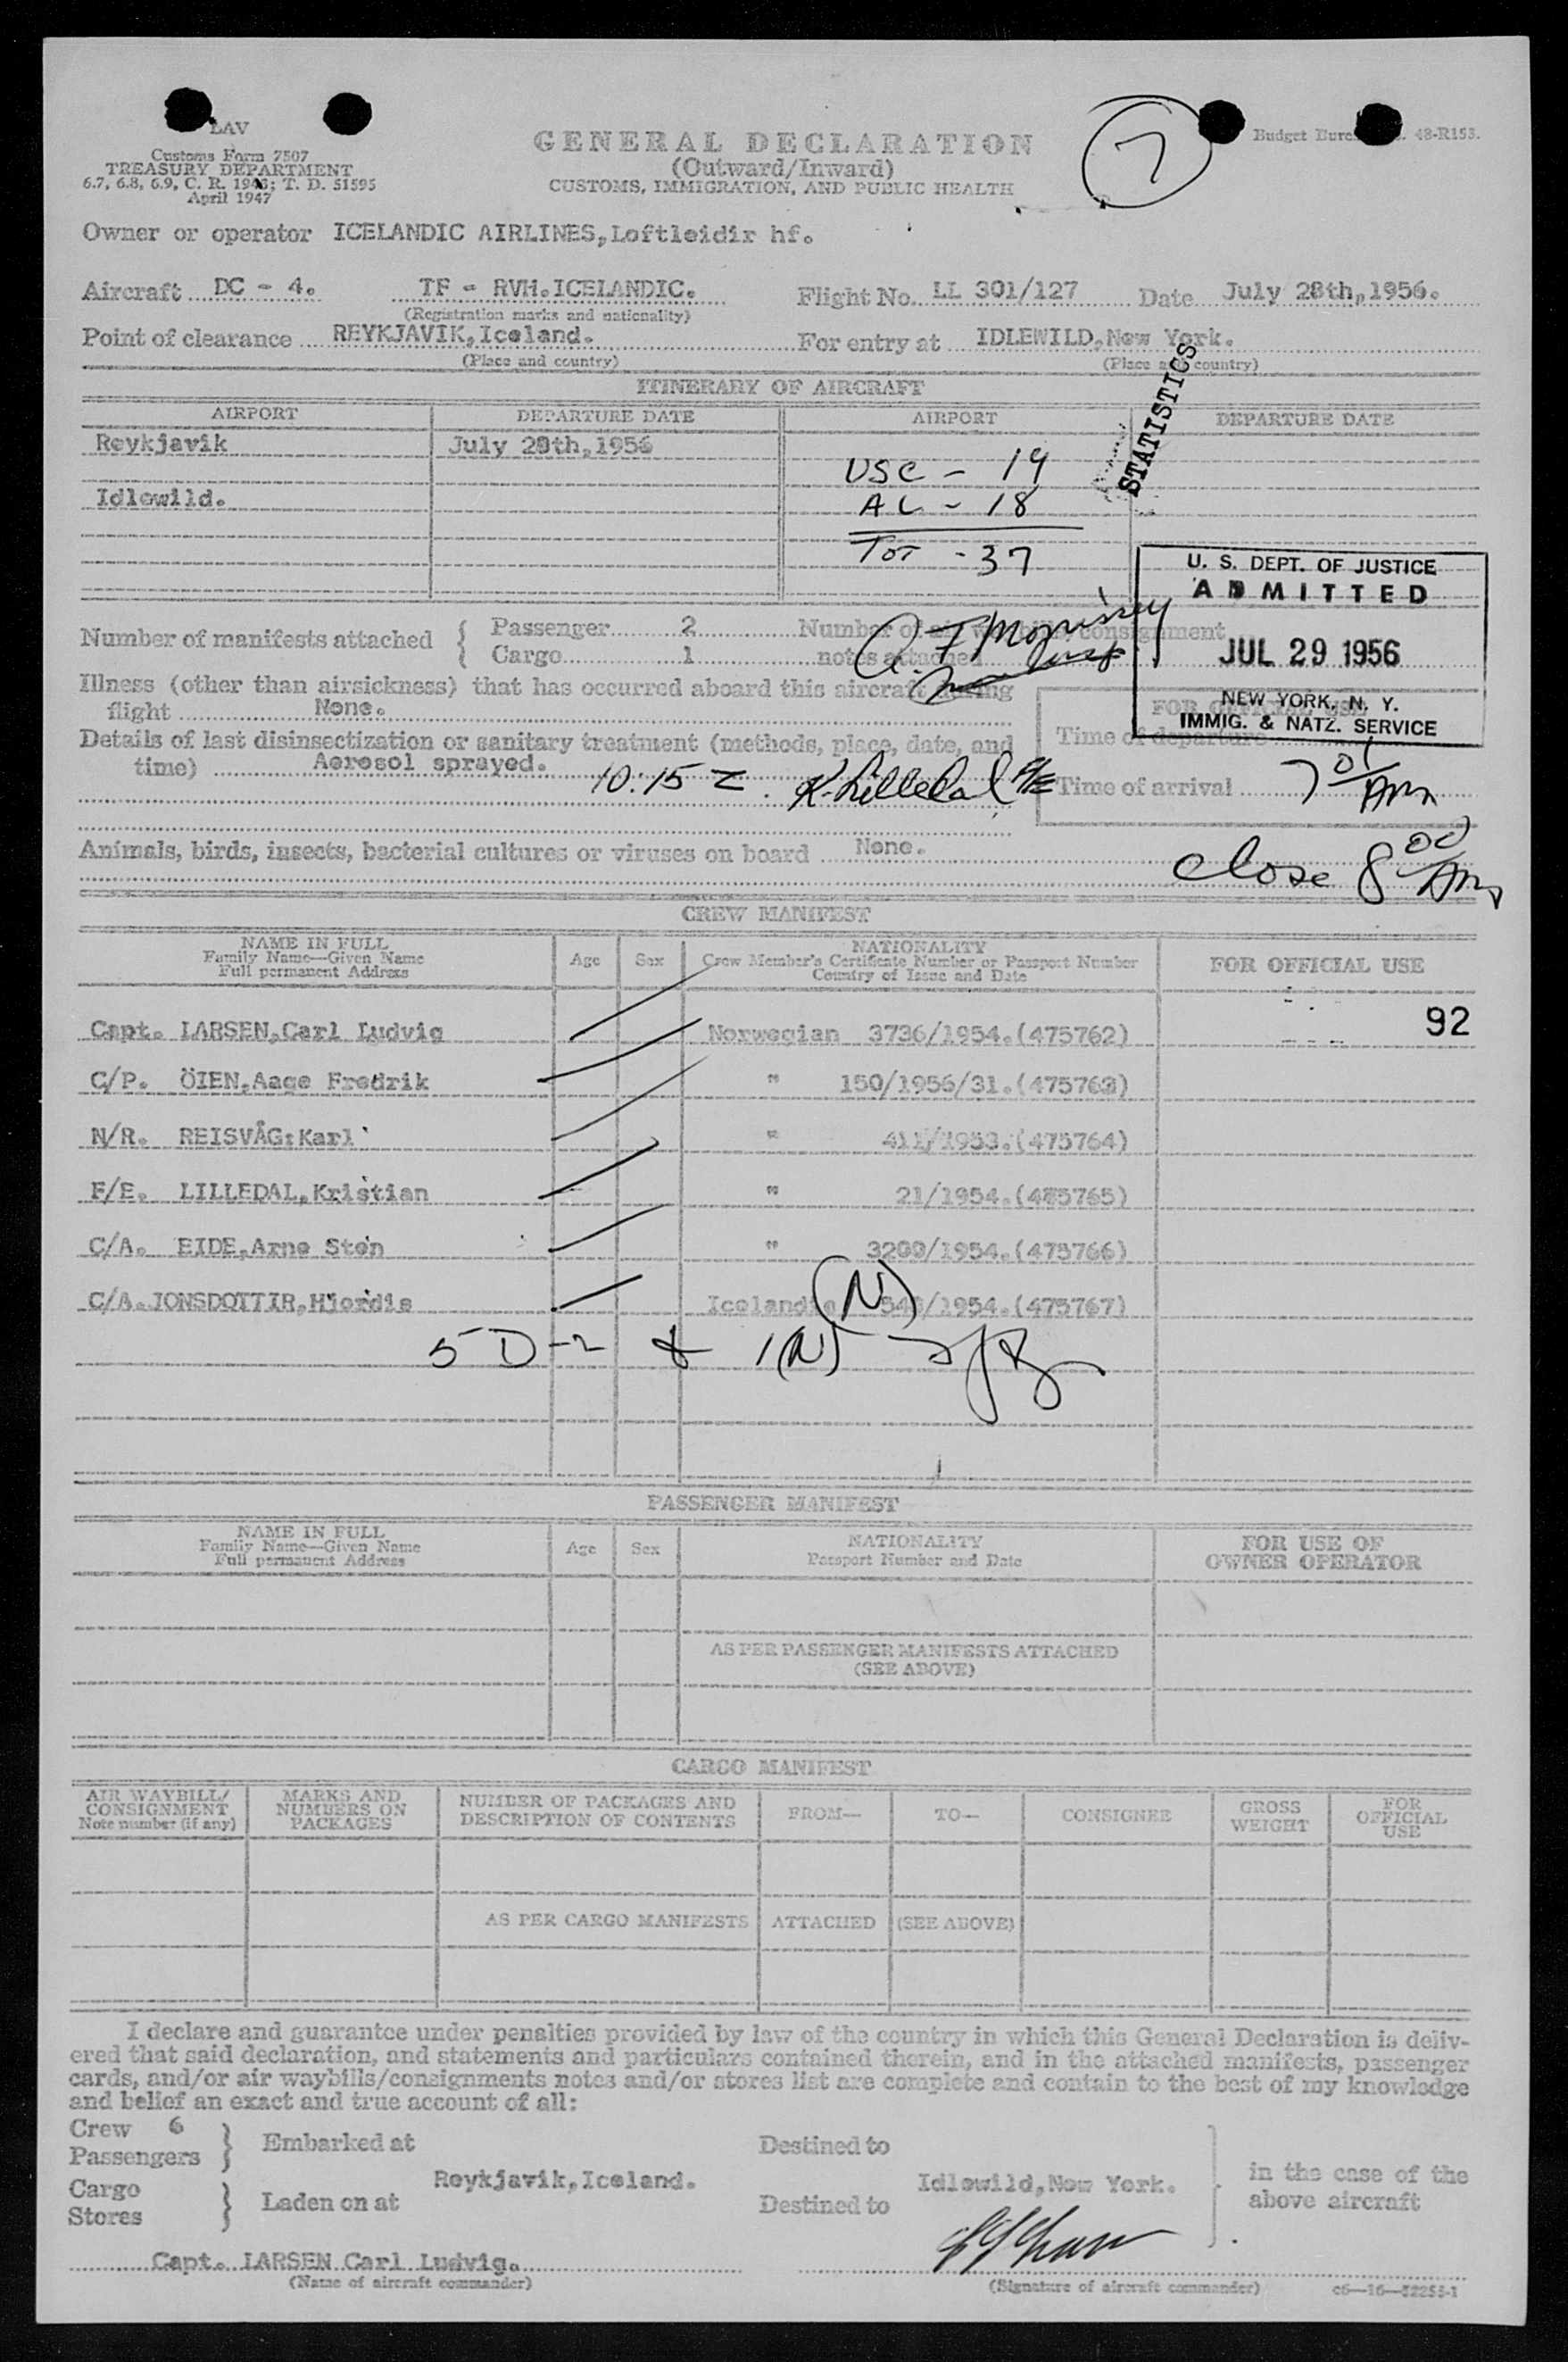 LAV
Customs Form 7507
TREASURY DEPARTMENT
6.7, 6.8, 6.9, C. R. 1943; T. D. 51595
April 1947
GENERAL DECLARATION
(Outward/Inward)
CUSTOMS, IMMIGRATION, AND PUBLIC HEALTH
7
Budget 48-R153.
Owner or operator ICELANDIC AIRLINES, Loftleidir hf.
Aircraft DC - 4. TF - RVH. ICELANDIC. Flight No. LL 301/127 Date July 28th, 1956.
(Registration marks and nationality)
Point of clearance REYKJAVIK, Iceland. For entry at IDLEWILD, New York.
(Place and country) (Place and country)
STATISTICS
ITINERARY OF AIRCRAFT
AIRPORT DEPARTURE DATE AIRPORT DEPARTURE DATE
Reykjavik July 28th, 1956
USC - 19
Idlewild.
AL - 18
TOT - 37
U. S. DEPT. OF JUSTICE
ADMITTED
JUL 29 1956
NEW YORK, N. Y.
IMMIG. & NATZ. SERVICE
Number of manifests attached { Passenger 2 Number of air waybills/consignment
Cargo 1 notes attached
Illness (other than airsickness) that has occurred aboard this aircraft during
flight None.
FOR OFFICIAL USE
Details of last disinsectization or sanitary treatment (methods, place, date, and
time) Aerosol sprayed. 10:15 Z. K. Lilledal F/E
Time of departure
Time of arrival 7 01 AM
Animals, birds, insects, bacterial cultures or viruses on board None.
Close 8 00 AM
CREW MANIFEST
NAME IN FULL
Family Name—Given Name
Full permanent Address
Age Sex
NATIONALITY
Crew Member's Certificate Number or Passport Number
Country of Issue and Date
FOR OFFICIAL USE
92
Capt. LARSEN, Carl Ludvig Norwegian 3736/1954. (475762)
C/P. ÖIEN, Aage Fredrik " 150/1956/31. (475763)
N/R. REISVÅG: Karl " 411/1953. (475764)
F/E. LILLEDAL, Kristian " 21/1954. (475765)
C/A. EIDE, Arne Sten " 3200/1954. (475766)
C/A. JONSDOTTIR, Hjordis Icelandic (N) /1954. (475767)
5 D-2 & 1(N)
PASSENGER MANIFEST
NAME IN FULL
Family Name—Given Name
Full permanent Address
Age Sex
NATIONALITY
Passport Number and Date
FOR USE OF
OWNER OPERATOR
AS PER PASSENGER MANIFESTS ATTACHED
(SEE ABOVE)
CARGO MANIFEST
AIR WAYBILL/
CONSIGNMENT
Note number (if any)
MARKS AND
NUMBERS ON
PACKAGES
NUMBER OF PACKAGES AND
DESCRIPTION OF CONTENTS
FROM— TO— CONSIGNEE
GROSS
WEIGHT
FOR
OFFICIAL
USE
AS PER CARGO MANIFESTS ATTACHED (SEE ABOVE)
I declare and guarantee under penalties provided by law of the country in which this General Declaration is deliv-
ered that said declaration, and statements and particulars contained therein, and in the attached manifests, passenger
cards, and/or air waybills/consignments notes and/or stores list are complete and contain to the best of my knowledge
and belief an exact and true account of all:
Crew 6
Passengers } Embarked at Destined to
Reykjavik, Iceland. Idlewild, New York.
in the case of the
above aircraft
Cargo
Stores } Laden on at Destined to
Capt. LARSEN Carl Ludvig.
(Name of aircraft commander) (Signature of aircraft commander) c6—16—52255-1